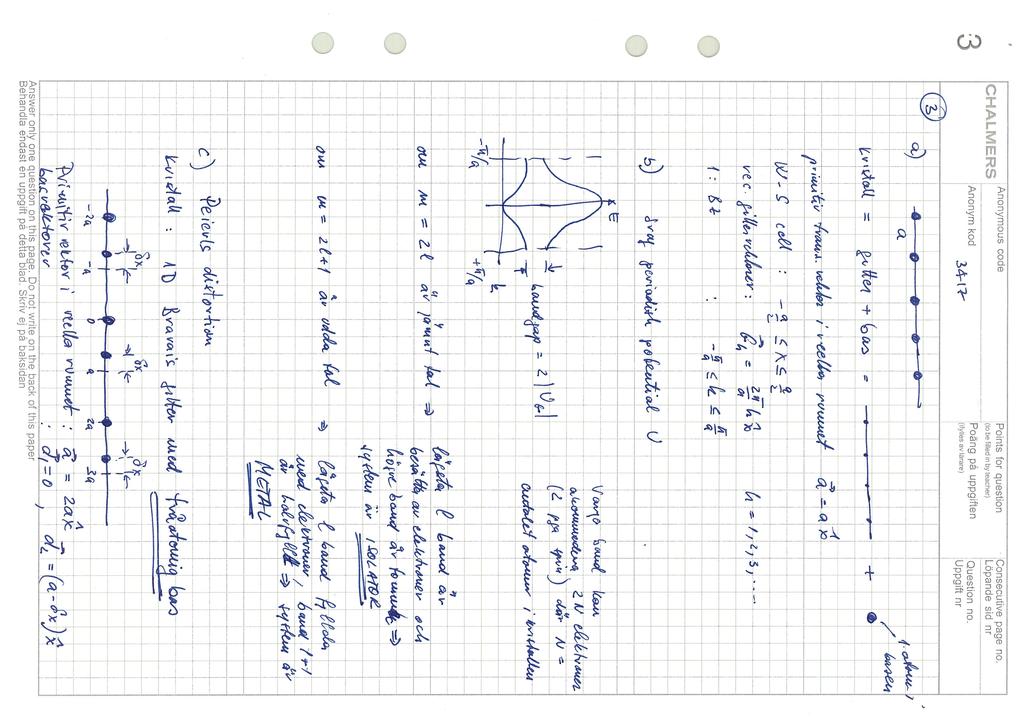 3
CHALMERS
Anonymous code
Anonym kod
3417
Points for question
(to be filled in by teacher)
Poäng på uppgiften
(fylles av lärare)
Consecutive page no.
Löpande sid nr
Question no.
Uppgift nr
3 a)
a
kristall = gitter + bas = + 1 atom i
basen
primitiv trans. vektor i reella rummet a⃗ = a x̂
W-S cell : -a/2 ≤ x ≤ a/2
rec. gittervektorer : G⃗h = 2π/a h x̂ h = 1, 2, 3, ....
1 : BZ : -π/a ≤ k ≤ π/a
b) svag periodisk potential U
E
bandgap = 2|UG|
k
-π/a +π/a
Varje band kan
akommodera 2N elektroner
(2 pga spin) där N =
antalet atomer i kristallen
om m = 2l är jämnt tal ⇒ lägsta l band är
besatta av elektroner och
högre band är tomma ⇒
system är ISOLATOR
om m = 2l+1 är udda tal ⇒ lägsta l band fyllda
med elektroner, band l+1
är halvfyllt ⇒ system är
METAL
c) Peierls distortion
kristall : 1D Bravais gitter med tvåatomig bas
δx δx δx
-2a -a 0 a 2a 3a
Primitiv vektor i reella rummet : a⃗ = 2a x̂
basvektorer : d⃗1 = 0 , d⃗2 = (a - δx) x̂
Answer only one question on this page. Do not write on the back of this paper
Behandla endast en uppgift på detta blad. Skriv ej på baksidan